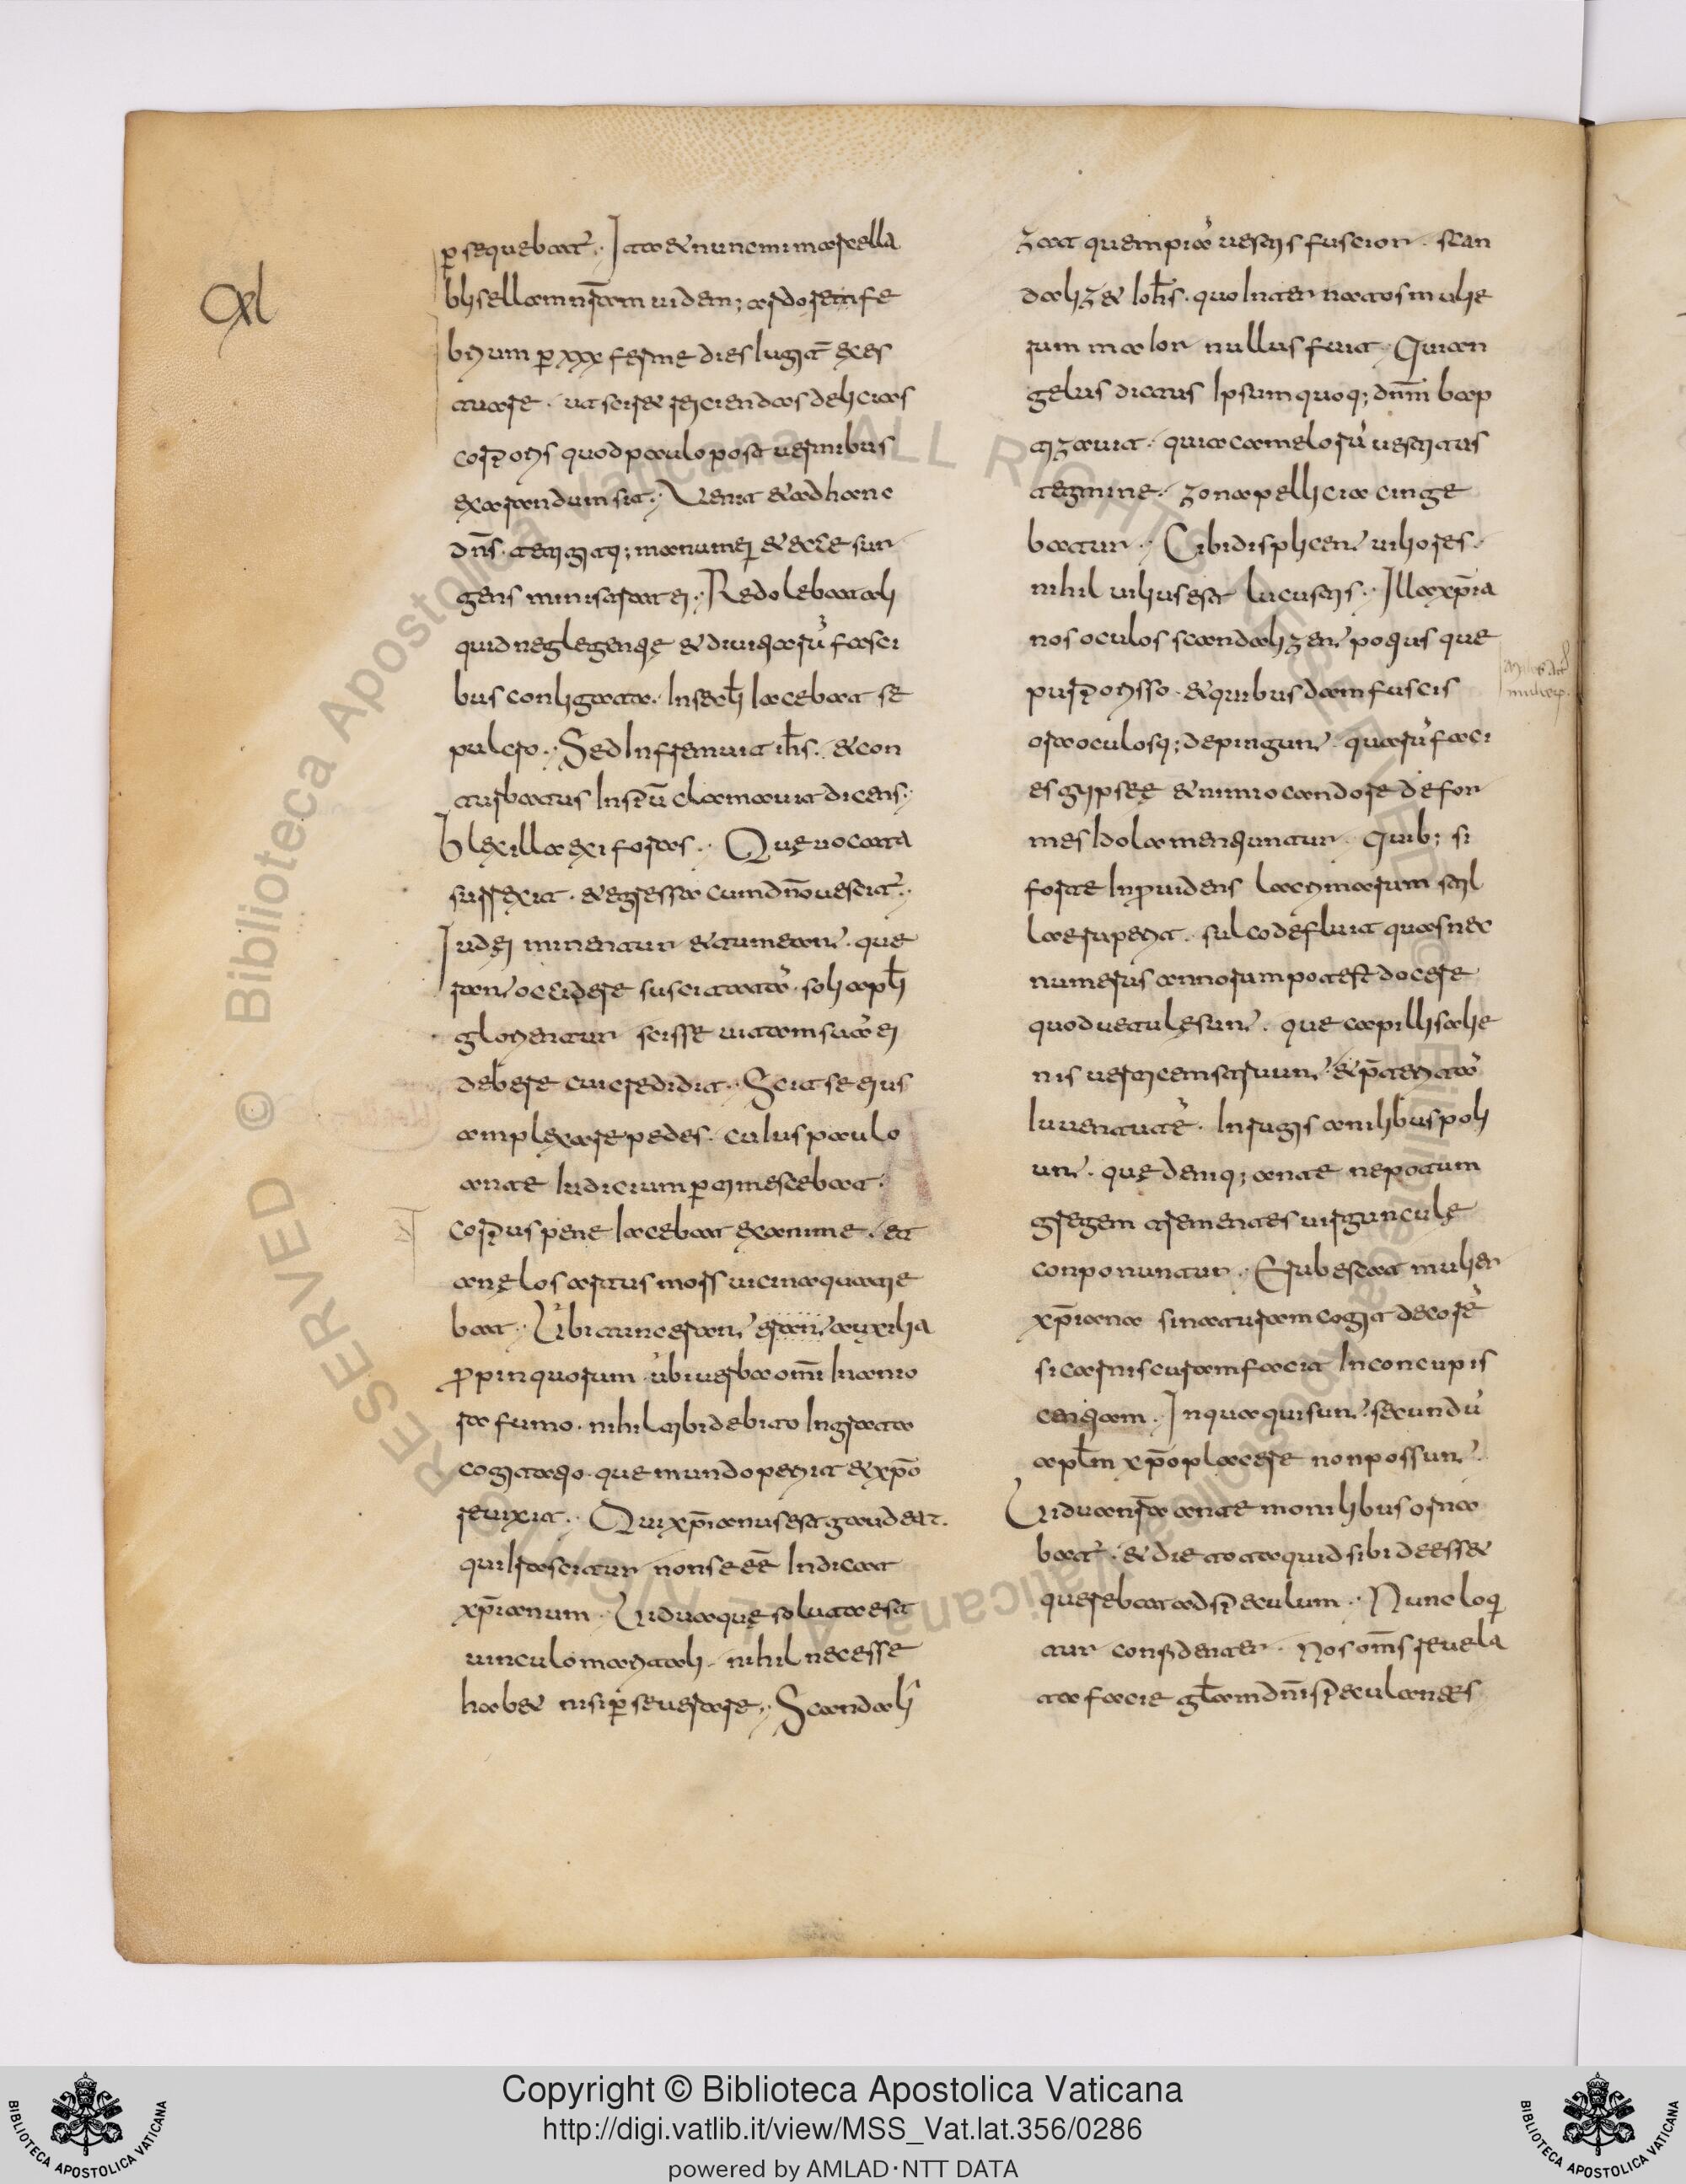 ꝑsequebat᷑. Ita & nunc immarcella
blisellam nr̄am uidem; ardore fe
brium ꝑ xxx ferme dies iugit̄ ęxes
tuare. ut sciret reiciendas delicias
corporis quod paulo post uermibus
exarandum sit. Uenit & ad hanc
dn̄s. tetigitq; manum ei & ecce sur
gens ministrat ei. Redolebat ali
quid neglegentię & diuitiarū fasci
bus conligata. In sęcl̄i iacebat se
pulcro. Sed infremuit ih̄s. & con
turbatus in sp̄ū clamauit dicens.
blęsilla exi foras. Quę uocata
surrexit. & egressa cum dn̄o uescit᷑.
Iudęi minentur & tumeant. que
rant occidere suscitatā. soli apl̄i
glorientur scisse uitam suā ei
debere cui credidit. Scit se eius
amplexare pedes. cuius paulo
ante iudicium ꝑtimescebat.
corpus pene iacebat exanime. et
anęlos artus mors uicina quatie
bat. Ubi tunc erant erant auxilia
ꝓpinquorum ubi uerba om̄i inanio
ra fumo. nihil tibi debit o ingrata
cogitatio. quę mundo periit & xp̄o
reuixit. Qui xp̄ianus est gaudeat.
qui irascitur non se eē̄ indicat
xp̄ianum. Uidua quę soluta est
uinculo maritali. nihil necesse
habet nisi ꝑseuerare. Scandali
zat quempiā uestis fuscior. scan
dalizet ioh̄s. quo inter natos mulie
rum maior nullus fuit. Qui an
gelus dictus ipsum quoq; dn̄m bap
tizauit. quia camelorū uestitus
tegmine. zona pellicia cinge
batur. Cibi displicent uiliores.
nihil uilius est lucustis. Illa xp̄ia
nos oculos scandalizent potius que
purporisso. & quibusdam fuscis
ora oculosq; depingunt. quarū faci
es gipseę & nimio candore defor
mes idola mentiuntur. Quib; si
forte inprouidens lacrimarum stil
la eruperit. sulco defluit quas nec
numerus annorum potest docere
quod uetulę sunt. que capillis alie
nis uerticem struunt & p̄teritā
iuuentutē. in rugis anilibus poli
unt. quę deniq; ante nepotum
gregem trementes uirgunculę
conponuntur. Erubescat mulier
xp̄iana si naturam cogit decorē
si carnis curam facit in concupis
centiam. In qua qui sunt. secundū
apl̄m xp̄o placere non possunt.
Uidua nr̄a ante monilibus orna
bat᷑. & die tota quid sibi deesset
querebat ad speculum. Nunc loqi
tur confidenter. Nos om̄s reuela
ta facie gl̄am dn̄i speculantes